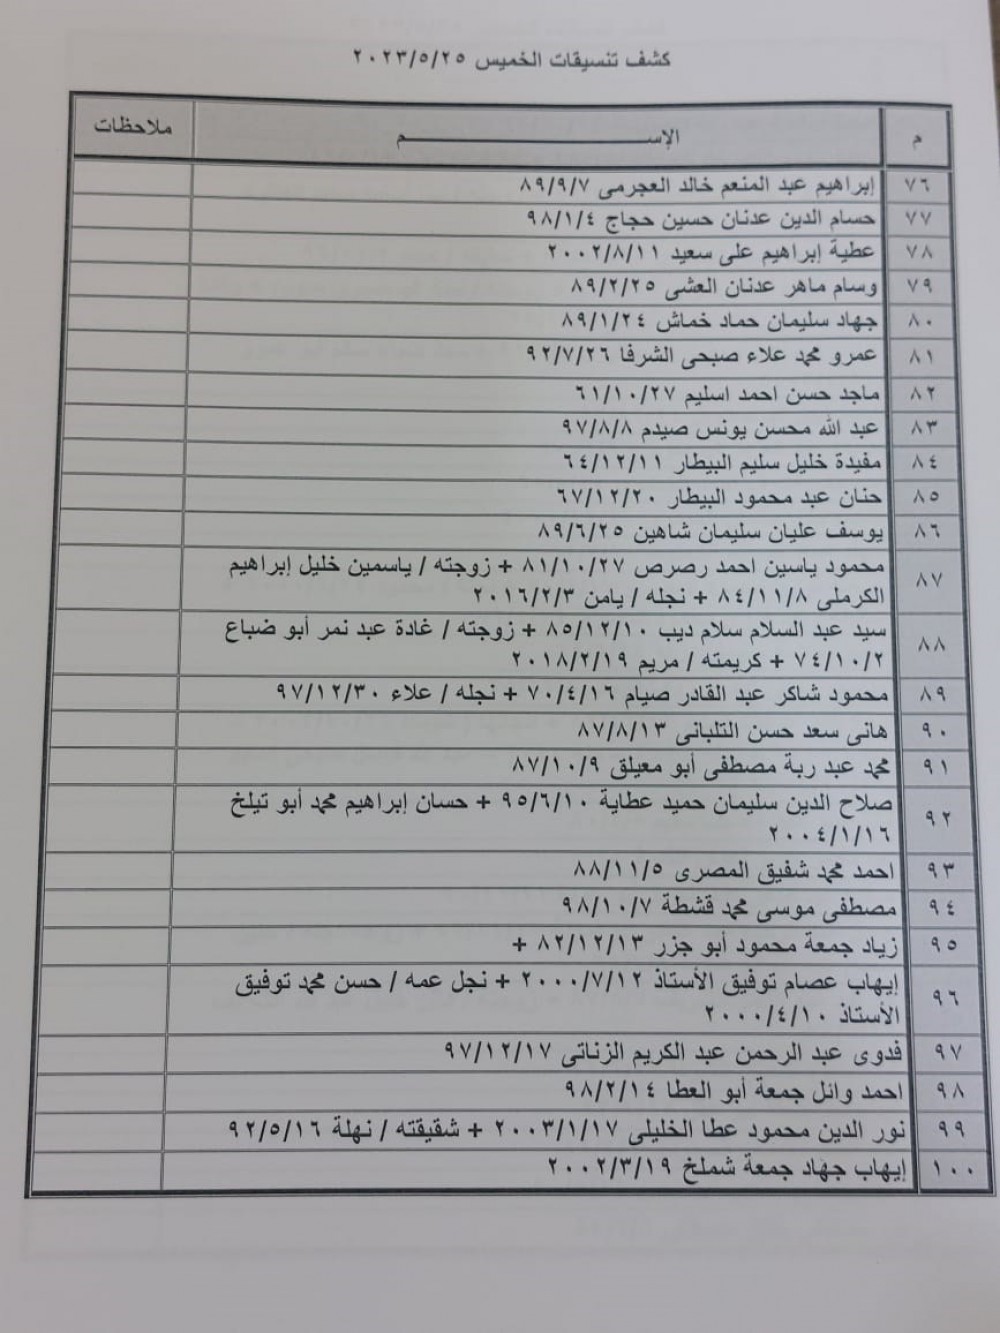 كشف تنسيقات الخميس ٢٠٢٣/٥/٢٥
م الإســـم ملاحظات
٧٦ إبراهيم عبد المنعم خالد العجرمى ٨٩/٩/٧
٧٧ حسام الدين عدنان حسين حجاج ٩٨/١/٤
٧٨ عطية إبراهيم على سعيد ٢٠٠٢/٨/١١
٧٩ وسام ماهر عدنان العشى ٨٩/٢/٢٥
٨٠ جهاد سليمان حماد خماش ٨٩/١/٢٤
٨١ عمرو محمد علاء صبحى الشرفا ٩٢/٧/٢٦
٨٢ ماجد حسن احمد اسليم ٦١/١٠/٢٧
٨٣ عبد الله محسن يونس صيدم ٩٧/٨/٨
٨٤ مفيدة خليل سليم البيطار ٦٤/١٢/١١
٨٥ حنان عبد محمود البيطار ٦٧/١٢/٢٠
٨٦ يوسف عليان سليمان شاهين ٨٩/٦/٢٥
٨٧ محمود ياسين احمد رصرص ٨١/١٠/٢٧ + زوجته / ياسمين خليل إبراهيم
الكرملى ٨٤/١١/٨ + نجله / يامن ٢٠١٦/٢/٣
٨٨ سيد عبد السلام سلام ديب ٨٥/١٢/١٠ + زوجته / غادة عبد نمر أبو ضباع
٧٤/١٠/٢ + كريمته / مريم ٢٠١٨/٢/١٩
٨٩ محمود شاكر عبد القادر صيام ٧٠/٤/١٦ + نجله / علاء ٩٧/١٢/٣٠
٩٠ هانى سعد حسن التلبانى ٨٧/٨/١٣
٩١ محمد عبد ربة مصطفى أبو معيلق ٨٧/١٠/٩
٩٢ صلاح الدين سليمان حميد عطاية ٩٥/٦/١٠ + حسان إبراهيم محمد أبو تيلخ
٢٠٠٤/١/١٦
٩٣ احمد محمد شفيق المصرى ٨٨/١١/٥
٩٤ مصطفى موسى محمد قشطة ٩٨/١٠/٧
٩٥ زياد جمعة محمود أبو جزر ٨٢/١٢/١٣ +
٩٦ إيهاب عصام توفيق الأستاذ ٢٠٠٠/٧/١٢ + نجل عمه / حسن محمد توفيق
الأستاذ ٢٠٠٠/٤/١٠
٩٧ فدوى عبد الرحمن عبد الكريم الزناتى ٩٧/١٢/١٧
٩٨ احمد وائل جمعة أبو العطا ٩٨/٢/١٤
٩٩ نور الدين محمود عطا الخليلى ٢٠٠٣/١/١٧ + شقيقته / نهلة ٩٢/٥/١٦
١٠٠ إيهاب جهاد جمعة شملخ ٢٠٠٢/٣/١٩